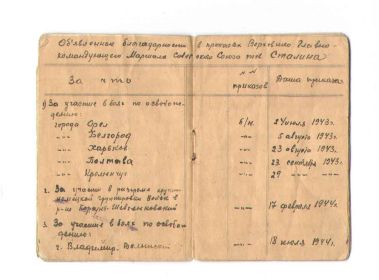 Объявленные благодарности в приказах Верховно Главно-
командующего Маршала Советская Союза тов Сталина
За что
№№ приказов
Дата приказа
1) За участие в боях по освобож-
дению:
города Орел б/н. 5 августа 1943г.
-"- Белгород -"- 5 августа 1943г.
-"- Харьков -"- 23 августа 1943г.
-"- Полтава -"- 23 сентября 1943г.
-"- Кременчуг -"- 29 -"- -"-
2. За участие в разгроме
немецкой группировки войск в
р-не Корсунь-Шевченковский -"- 17 февраля 1944г.
3. За участие в боях по освобож-
дению:
г. Владимир. Волынский -"- 18 июля 1944г.